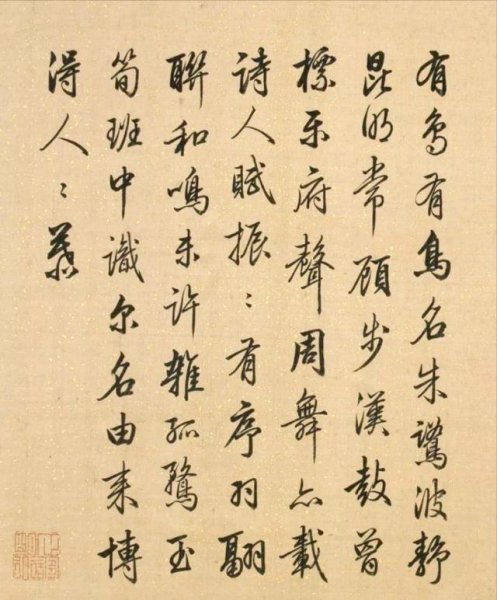 有鳥有鳥名朱鷺波静
昆明常顧步漢鼓曽
標乐府聲周舞亦載
詩人賦振〻有序羽翩
聯和鳴未許雜孤鶩玉
筍班中識尔名由来博
得人〻慕